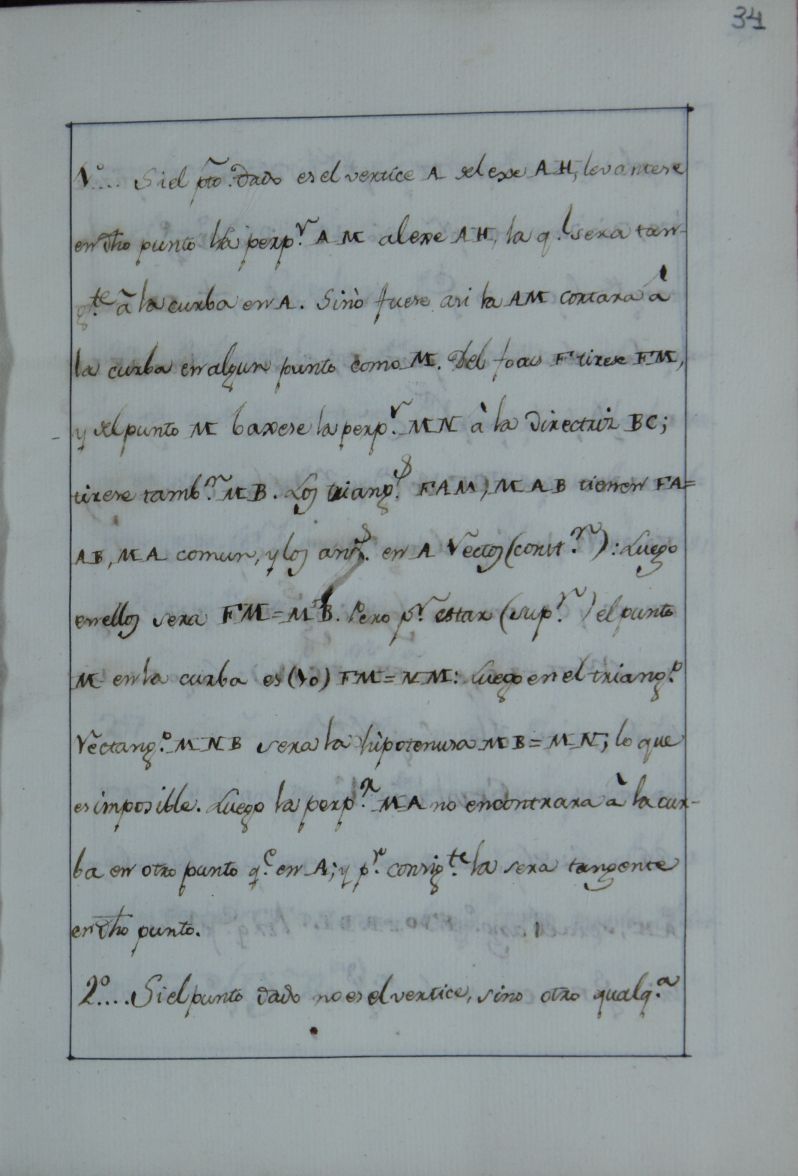 34
1º... Si el pto. dado es el vertice A del exe AH, levantese
en dho punto la perp.r AM al exe AH, la q.l sera tan-
g.te â la curba en A. Sinò fuese asi la AM cortara â
la curba en algun punto como M. Del focus F tirese FM,
y del punto M baxese la perp.r MN à la Directriz BC;
tirese tamb.n MB. Los triang.s FAM, MAB tienen FA=
AB, MA comun, y los ang.s en A rectos (const.n): Luego
en ellos sera FM=MB. Pero p.r estar (sup.n) el punto
M en la curba es (10) FM=NM: Luego en el triang.o
rectang.o MNB sera la hipotenusa MB=MN; lo que
es imposible. Luego la perp.r MA no encontrara à la cur-
ba en otro punto q.e en A; y p.r consig.te la sera tangente
en dho punto.
2º.... Si el punto dado no es el vertice, sino otro qualq.a